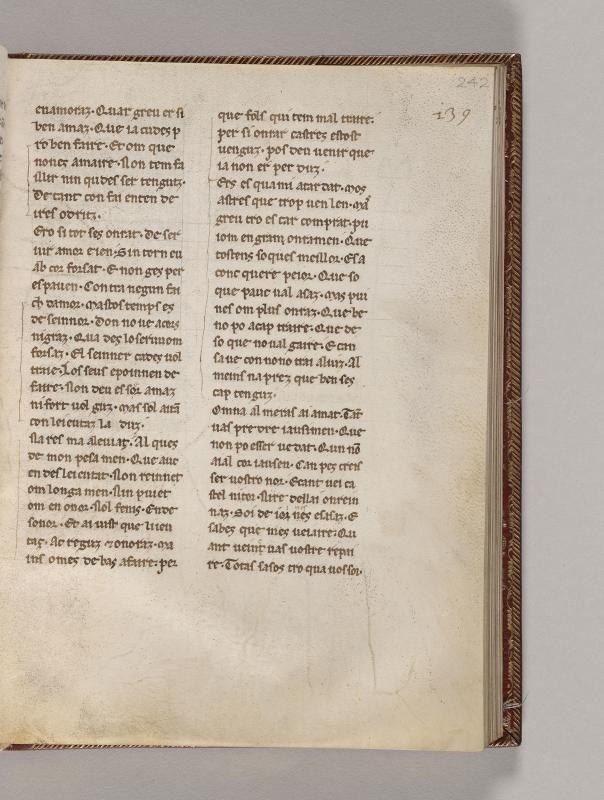 242
139
enamoraz. Quar greu er si
ben amaz. Que ia cudes p
ro ben faire. Et om que
non es amaire. Non tem fa
illir nin qu des ser tenguz.
De tant con fai enten de
ires
Ero si tot ses onrat. De ser
uir amor e ien. Sin torn eu
ab cor forsat. E non ges per
espauen. Contra negun fai
damor. Mas tos temps es
de seinnor. Don no ue
nigraz. Qua des lo seruuom
forsaz. El seinner cades uol
traire. Los seus
faire. Non deu esser amaz
ni fort uol guz. mas sol
con leieutaz la duz.
Na res ma aleuiat. Al ques
de mon pesamen. Que aue
en des leieutat. Non reinnet
om longamen. Nin puiet
om en onor. Nol fenis. En de
sonor. Et ai uist que li ien
taz. Ac reguz onoraz. ma
ins omes de bas afaire. per
que fols qui tem mal traire.
per si onrar castres estort
uenguz. pos deu uenir que
ia non er per duz.
Ers es qua mi atardat. Mos
astres que trop uen len.
greu cro es car comprat. pu
iom en gram onramen. Que
tostens so ques meillor. Es a
conc quere peior. Que so
que pauc ual asaz. Mas pui
nes om plus onraz. Que be
no po acap traire. Que de
so que no ual gaire. E can
sa ue con nono trai aluiz. Al
meins na prez que ben ses
cap tenguz.
Domna al meras ai amar.
uas pre dre iausimen. Que
non po esser ue dat. Qun
aial cor iausen. Can pes creis
ser uostro nor. E cant uei ca
stel nitor. Nire dellai onrein
naz. Soi de ioi nes esasaz. E
sabez que mes ueiaire. Qu
ant ueint uas uostre repai
re. Totas sasos cro qua uos sor.